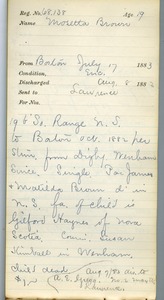 Reg. No. 68,138 Age 19
Name Mosetta Brown
From Boston July 17 1883
Condition, Enc.
Discharged Aug. 8 1883
Sent to Lawrence
For No.
19 b. Range N. S.
to Boston Oct. 1882 per
Stmr. from Digby. Wenham
since. Single. Fa. James
& Matilda Brown d' in
N. S. fa. of child is
Gilford Haynes of Nova
Scotia. Cons. Susan
Kimball in Wenham.
Child dead. Aug 7/83